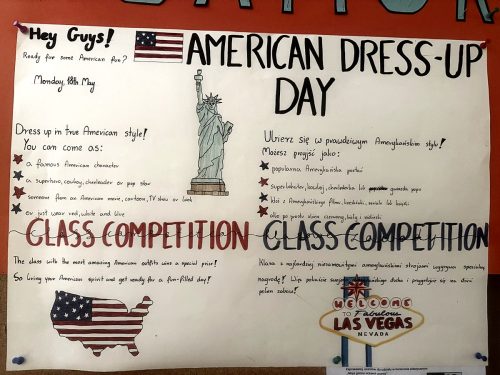 Hey Guys!
Ready for some American fun?
Monday, 18th May
AMERICAN DRESS-UP
DAY
Dress up in true American style!
You can come as:
a famous American character
a superhero, cowboy, cheerleader or pop star
someone from an American movie, cartoon, TV show or book
or just wear red, white and blue
Ubierz się w prawdziwym Amerykańskim stylu!
Możesz przyjść jako:
popularna Amerykańska postać
superbohater, kowboj, cheerleaderka lub gwiazda popu
ktoś z Amerykańskiego filmu, kreskówki, serialu lub książki
albo po prostu ubierz czerwony, biały i niebieski
CLASS COMPETITION
The class with the most amazing American outfits wins a special prize!
So bring your American spirit and get ready for a fun-filled day!
CLASS COMPETITION
Klasa z najbardziej niesamowitymi amerykańskimi strojami wygrywa specjalną
nagrodę! Więc pokażcie swojego amerykańskiego ducha i przygotujcie się na dzień
pełen zabawy!
WELCOME
TO Fabulous
LAS VEGAS
NEVADA